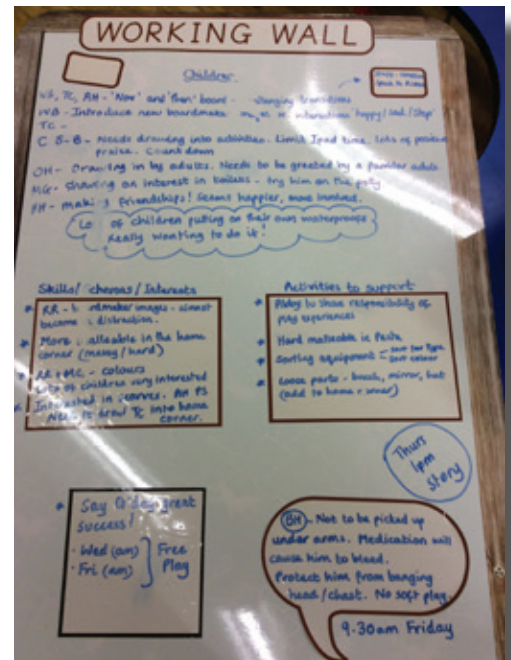 WORKING WALL
Children
VB, TC, AH - 'Now' and 'Then' board - changing transitions
WB - Introduce new boardmaker interaction happy/sad/stop
TC -
C B-B - Needs drawing into activities. Limit Ipad time. Lots of positive
praise. Count down
OH - Drawing in by adults. Needs to be greeted by a familiar adult
MG - Showing an interest in toilets - try him on the potty
HH - making friendships! Seems happier, more involved.
of children putting on their own waterproofs
Really wanting to do it!
Skills/ / Interests
RR - images - almost
become distraction.
More malleable in the home
corner (messy/hard)
RR + MC - colours
Lots of children very interested
Interested in scarves. AH PS
Need to draw TC into home
corner.
Activities to support
to share responsibility of
play experiences
Hard malleable ie Pasta
Sorting equipment - Sort by Type
Sort colour
Loose parts - brush, mirror, hat
(add to home corner)
Thurs
1pm
Story
Say G'day great
success!
Wed (am)
Fri (am)
Free
Play
BH - Not to be picked up
under arms. Medication will
cause him to bleed.
Protect him from banging
head/chest. No soft play.
9.30am Friday